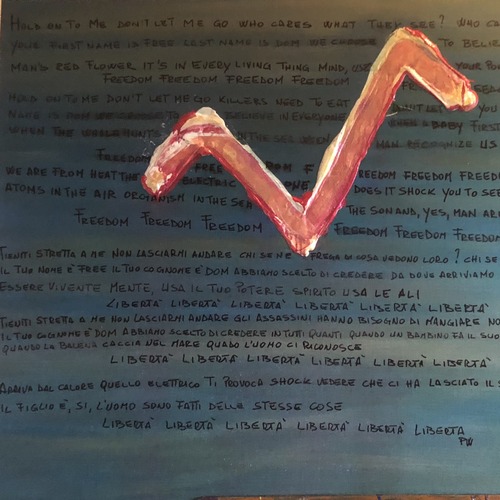 HOLD ON TO ME DON'T LET ME GO WHO CARES WHAT THEY SEE? WHO
YOUR FIRST NAME IS FREE LAST NAME IS DOM WE CHOOSE TO
MAN'S RED FLOWER IT'S IN EVERY LIVING THING MIND, USE YOUR
FREEDOM FREEDOM FREEDOM FREEDOM
HOLD ON TO ME DON'T LET ME GO KILLERS NEED TO EAT DON'T LET
NAME IS DOM WE IN EVERYONE WHEN A BABY FIRST
WHEN THE WHALE HUNTS IN THE SEA MAN RECOGNIZE US
FREEDOM
WE ARE FROM HEAT THE ELECTRIC ONE DOES IT SHOCK YOU TO SEE
ATOMS IN THE AIR ORGANISM IN THE SEA THE SON AND, YES, MAN
FREEDOM FREEDOM FREEDOM FREEDOM FREEDOM FREEDOM
TIENITI STRETTA A ME NON LASCIARMI ANDARE CHI SE NE FREGA DI COSA VEDONO LORO? CHI SE
IL TUO NOME È FREE IL TUO COGNOME È DOM ABBIAMO SCELTO DI CREDERE DA DOVE ARRIVIAMO
ESSERE VIVENTE MENTE, USA IL TUO POTERE SPIRITO USA LE ALI
LIBERTÀ LIBERTÀ LIBERTÀ LIBERTÀ LIBERTÀ LIBERTÀ
TIENITI STRETTA A ME NON LASCIARMI ANDARE GLI ASSASSINI HANNO BISOGNO DI MANGIARE
IL TUO COGNOME È DOM ABBIAMO SCELTO DI CREDERE IN TUTTI QUANTI QUANDO UN BAMBINO FA IL SUO
QUANDO LA BALENA CACCIA NEL MARE QUADO L'UOMO CI RICONOSCE
LIBERTÀ LIBERTÀ LIBERTÀ LIBERTÀ LIBERTÀ LIBERTÀ
ARRIVA DAL CALORE QUELLO ELETTRICO TI PROVOCA SHOCK VEDERE CHE CI HA LASCIATO IL
IL FIGLIO È, SI, L'UOMO SONO FATTI DELLE STESSE COSE
LIBERTÀ LIBERTÀ LIBERTÀ LIBERTÀ LIBERTÀ LIBERTA
PW